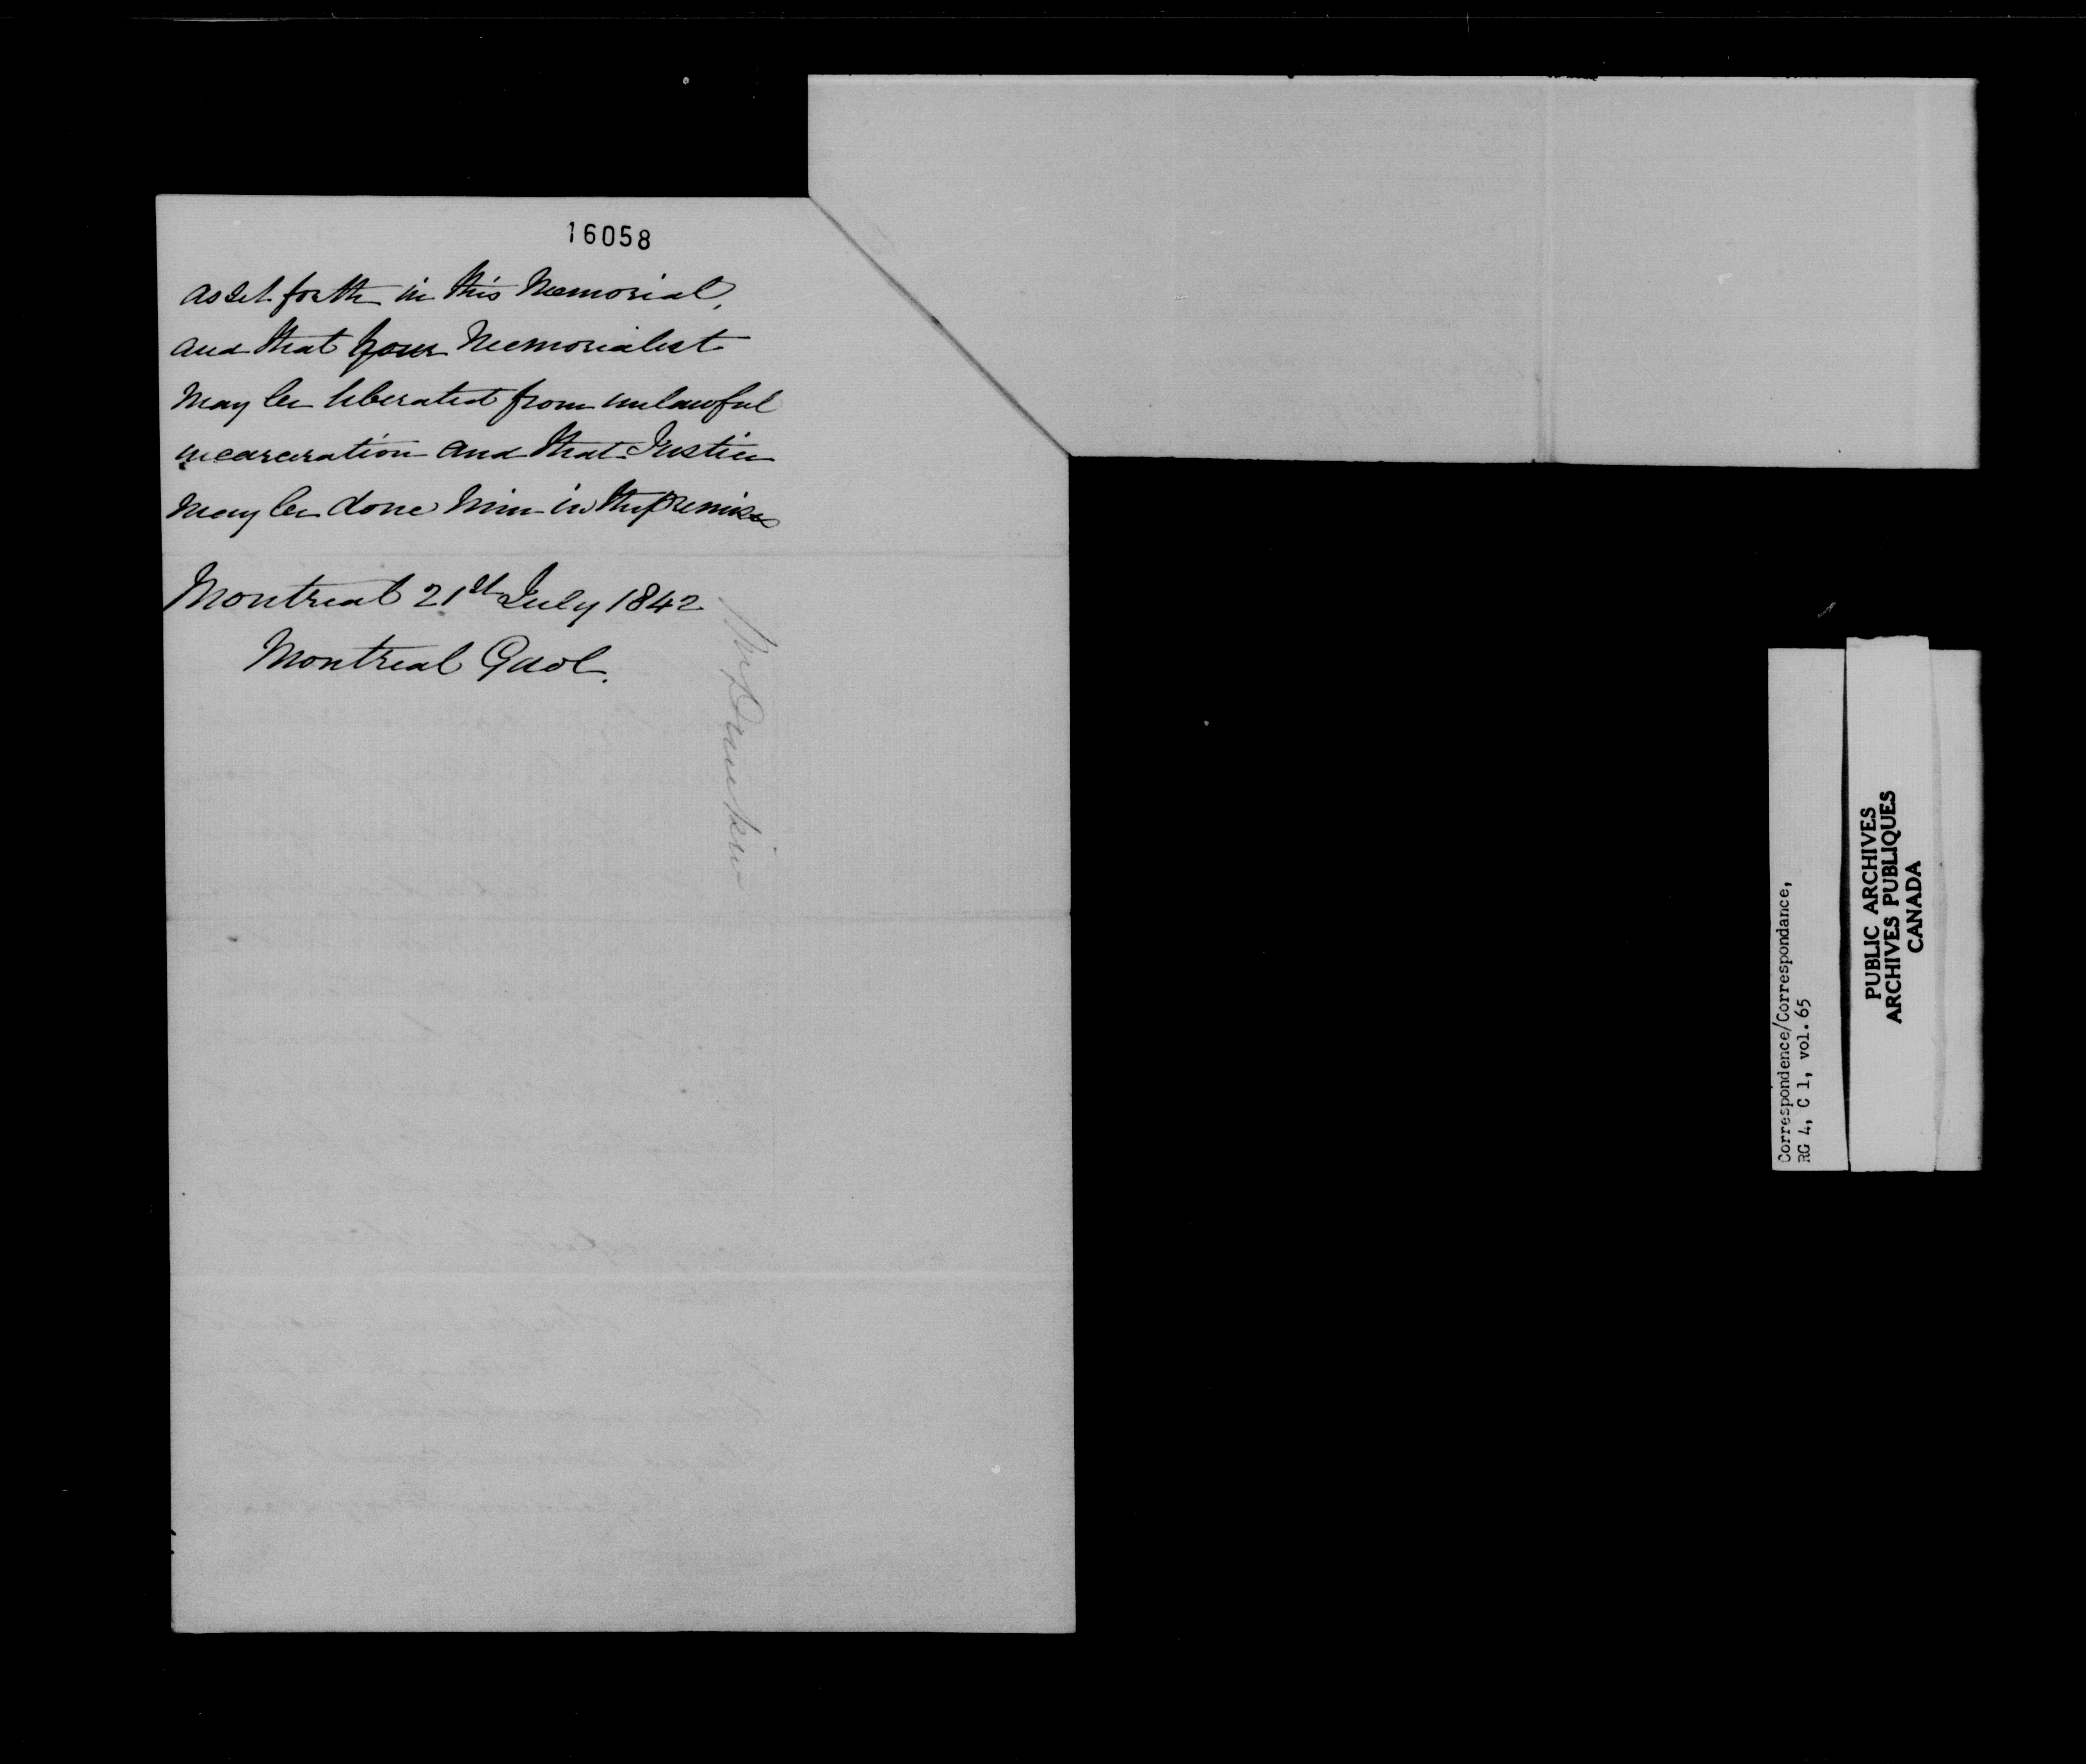 16058
as set forth in this Memorial,
and that your Memorialist
may be liberated from unlawful
incarceration and that Justice
may be done him in the premises
Montreal 21st July 1842
Montreal Gaol.
Mr Dunkin
Correspondence/Correspondance,
RG 4, C 1, vol. 65
PUBLIC ARCHIVES
ARCHIVES PUBLIQUES
CANADA